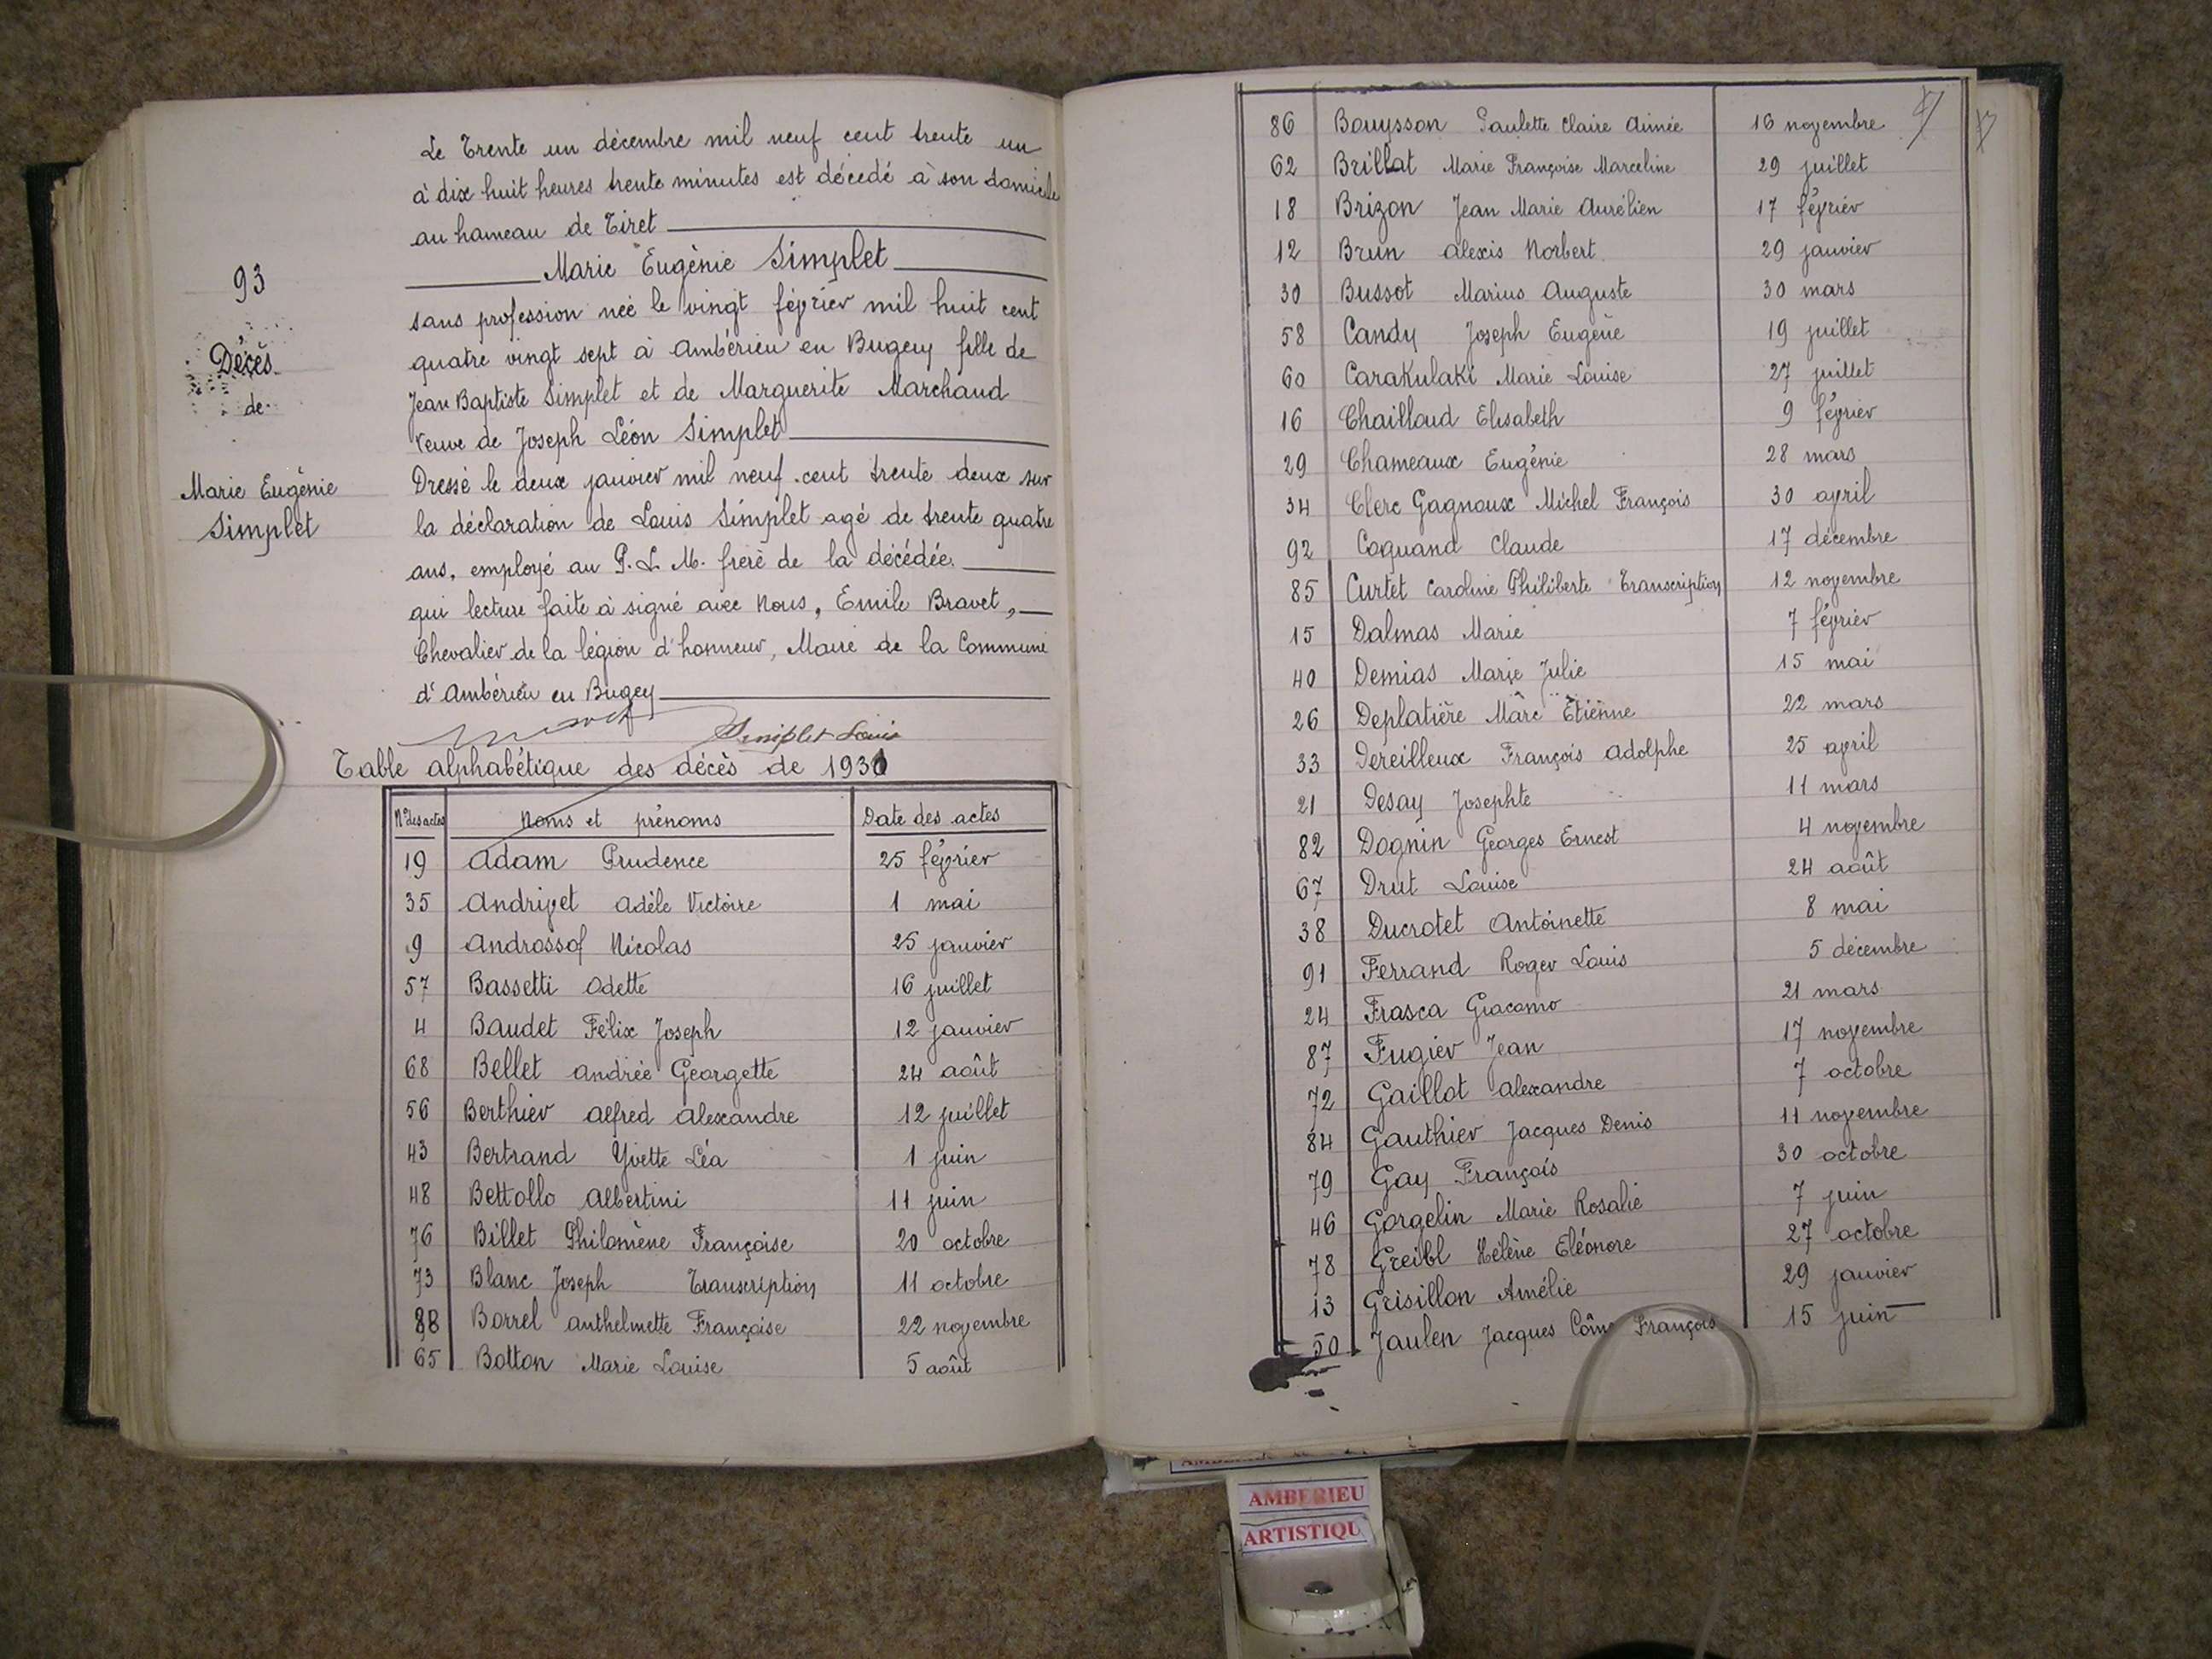 Le Trente un décembre mil neuf cent trente un
à dix huit heures trente minutes est décédé à son domicile
au hameau de Tiret
Marie Eugènie Simplet
93
Décès
de
Marie Eugènie
Simplet
sans profession née le vingt février mil huit cent
quatre vingt sept à Ambérieu en Bugey fille de
Jean Baptiste Simplet et de Marguerite Marchand
Veuve de Joseph Léon Simplet
Dressé le deux janvier mil neuf cent trente deux sur
la déclaration de Louis Simplet agé de trente quatre
ans, employé au P. L. M. frère de la décédée.
qui lecture faite à signé avec Nous, Emile Bravet,
Chevalier de la légion d'honneur, Maire de la Commune
d'Ambérieu en Bugey
Simplet Louis
Table alphabétique des décès de 1931
N° des actes Noms et prénoms Date des actes
19 Adam Prudence 25 février
35 Andrivet Adèle Victoire 1 mai
9 Androssof Nicolas 25 janvier
57 Bassetti Odette 16 juillet
4 Baudet Félix Joseph 12 janvier
68 Bellet Andrée Georgette 24 août
56 Berthier Alfred Alexandre 12 juillet
43 Bertrand Yvette Léa 1 juin
48 Bettollo Albertini 11 juin
76 Billet Philomène Françoise 20 octobre
73 Blanc Joseph Transcription 11 octobre
88 Borrel Anthelmette Françoise 22 novembre
65 Botton Marie Louise 5 août
86 Bouysson Paulette Claire Aimée 16 novembre
62 Brillat Marie Françoise Marceline 29 juillet
18 Brizon Jean Marie Aurélien 17 février
12 Brun Alexis Norbert 29 janvier
30 Bussot Marius Auguste 30 mars
58 Candy Joseph Eugène 19 juillet
60 Carakulaki Marie Louise 27 juillet
16 Chailloud Elisabeth 9 février
29 Chameaux Eugénie 28 mars
34 Clerc Gagnoux Michel François 30 avril
92 Coquand Claude 17 décembre
85 Curtet Caroline Philiberte Transcription 12 novembre
15 Dalmas Marie 7 février
40 Demias Marie Julie 15 mai
26 Deplatière Marc Etienne 22 mars
33 Dereilleux François Adolphe 25 avril
21 Desay Josephte 11 mars
82 Dognin Georges Ernest 4 novembre
67 Drut Louise 24 août
38 Ducrotet Antoinette 8 mai
91 Ferrand Roger Louis 5 décembre
24 Frasca Giacomo 21 mars
87 Fugier Jean 17 novembre
72 Gaillot Alexandre 7 octobre
84 Gauthier Jacques Denis 11 novembre
79 Gay François 30 octobre
46 Gorgelin Marie Rosalie 7 juin
78 Greibl Hélène Eléonore 27 octobre
13 Grisillon Amélie 29 janvier
50 Jaulen Jacques Côme François 15 juin
AMBERIEU
ARTISTIQU